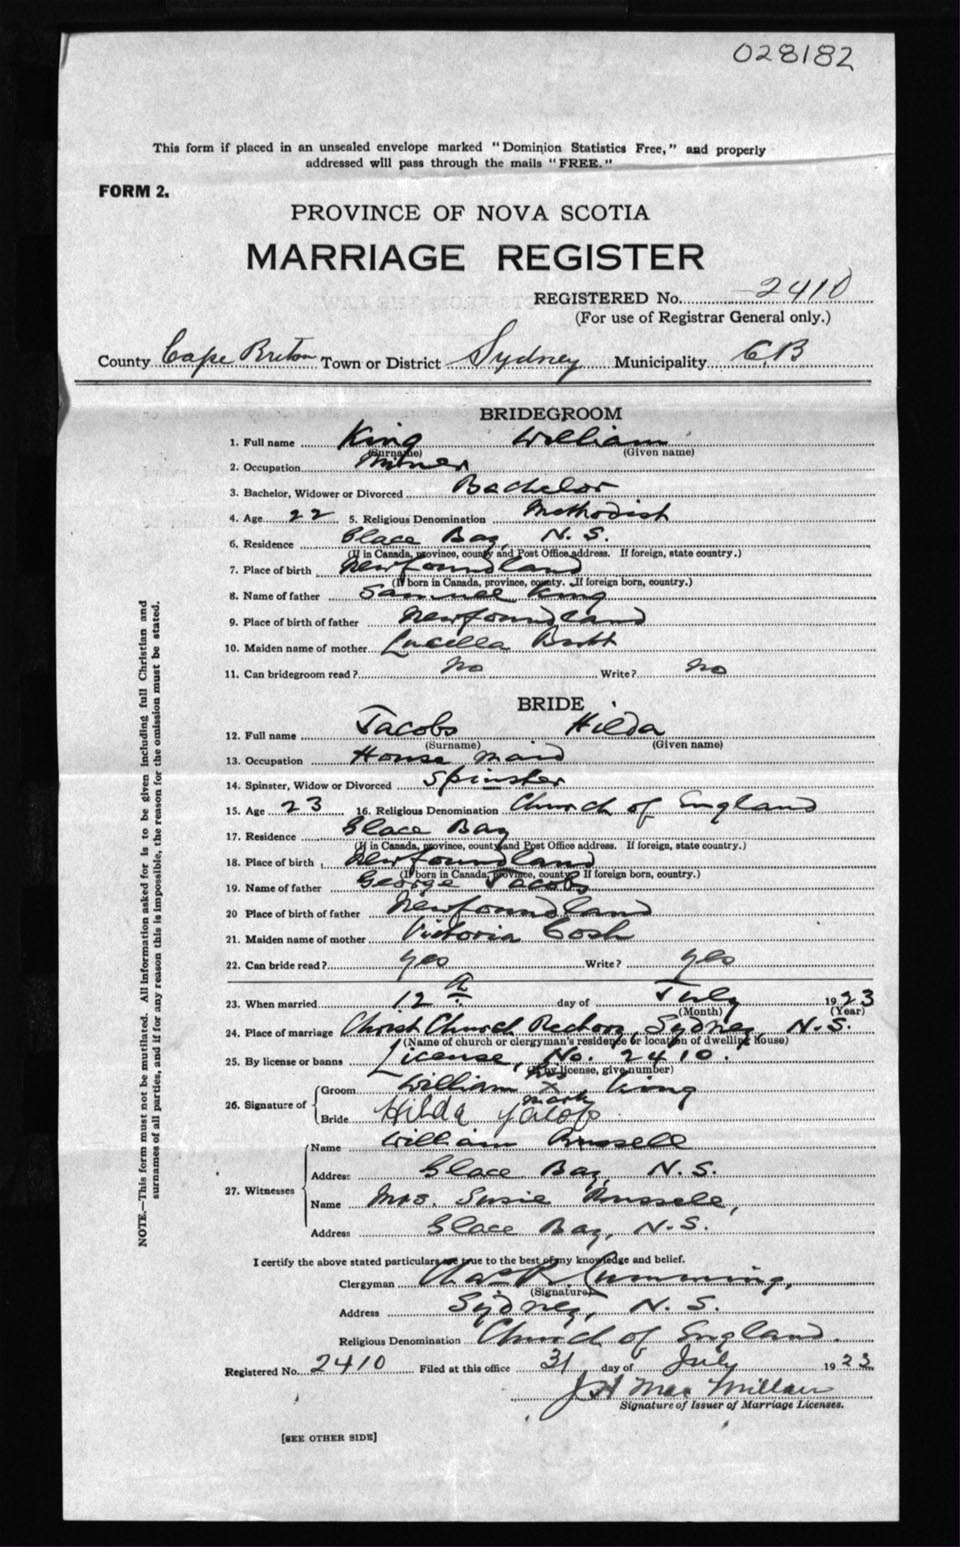 028182
This form if placed in an unsealed envelope marked "Dominion Statistics Free," and properly
addressed will pass through the mails "FREE."
FORM 2.
PROVINCE OF NOVA SCOTIA
MARRIAGE REGISTER
REGISTERED No. 2410
(For use of Registrar General only.)
County Cape Breton Town or District Sydney Municipality C.B
BRIDEGROOM
1. Full name King William
(Surname) (Given name)
2. Occupation Miner
3. Bachelor, Widower or Divorced Bachelor
4. Age 22 5. Religious Denomination Methodist
6. Residence Glace Bay, N. S.
(If in Canada, province, county and Post Office address. If foreign, state country.)
7. Place of birth Newfoundland
(If born in Canada, province, county. If foreign born, country.)
8. Name of father Samuel King
9. Place of birth of father Newfoundland
10. Maiden name of mother Lucella
11. Can bridegroom read? No Write? No
BRIDE
12. Full name Jacobs Hilda
(Surname) (Given name)
13. Occupation House maid
14. Spinster, Widow or Divorced Spinster
15. Age 23 16. Religious Denomination Church of England
17. Residence Glace Bay
(If in Canada, province, county and Post Office address. If foreign, state country.)
18. Place of birth Newfoundland
(If born in Canada, province, county. If foreign born, country.)
19. Name of father George Jacobs
20 Place of birth of father Newfoundland
21. Maiden name of mother Victoria Cosh
22. Can bride read? yes Write? yes
23. When married 12th day of July 1923
(Month) (Year)
24. Place of marriage Christ Church Rectory, Sydney, N.S.
(Name of church or clergyman's residence or location of dwelling house)
25. By license or banns License, No. 2410.
(If by license, give number)
26. Signature of
Groom William his x mark King
Bride Hilda Jacobs
27. Witnesses
Name William Russell
Address Glace Bay, N. S.
Name Mrs. Susie Russell,
Address Glace Bay, N. S.
I certify the above stated particulars are true to the best of my knowledge and belief.
Clergyman Chas R Cumming,
(Signature)
Address Sydney, N. S.
Religious Denomination Church of England.
Registered No. 2410 Filed at this office 31 day of July 1923
J H MacMillan
Signature of Issuer of Marriage Licenses.
[SEE OTHER SIDE]
NOTE.—This form must not be mutilated. All information asked for is to be given including full Christian and
surnames of all parties, and if for any reason this is impossible, the reason for the omission must be stated.